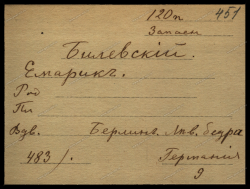 120п 451
Запасн
Билевскій.
Емарикъ.
Род
Пл
Взв. Берлинъ. Лив. бюра
483/. Германія
9